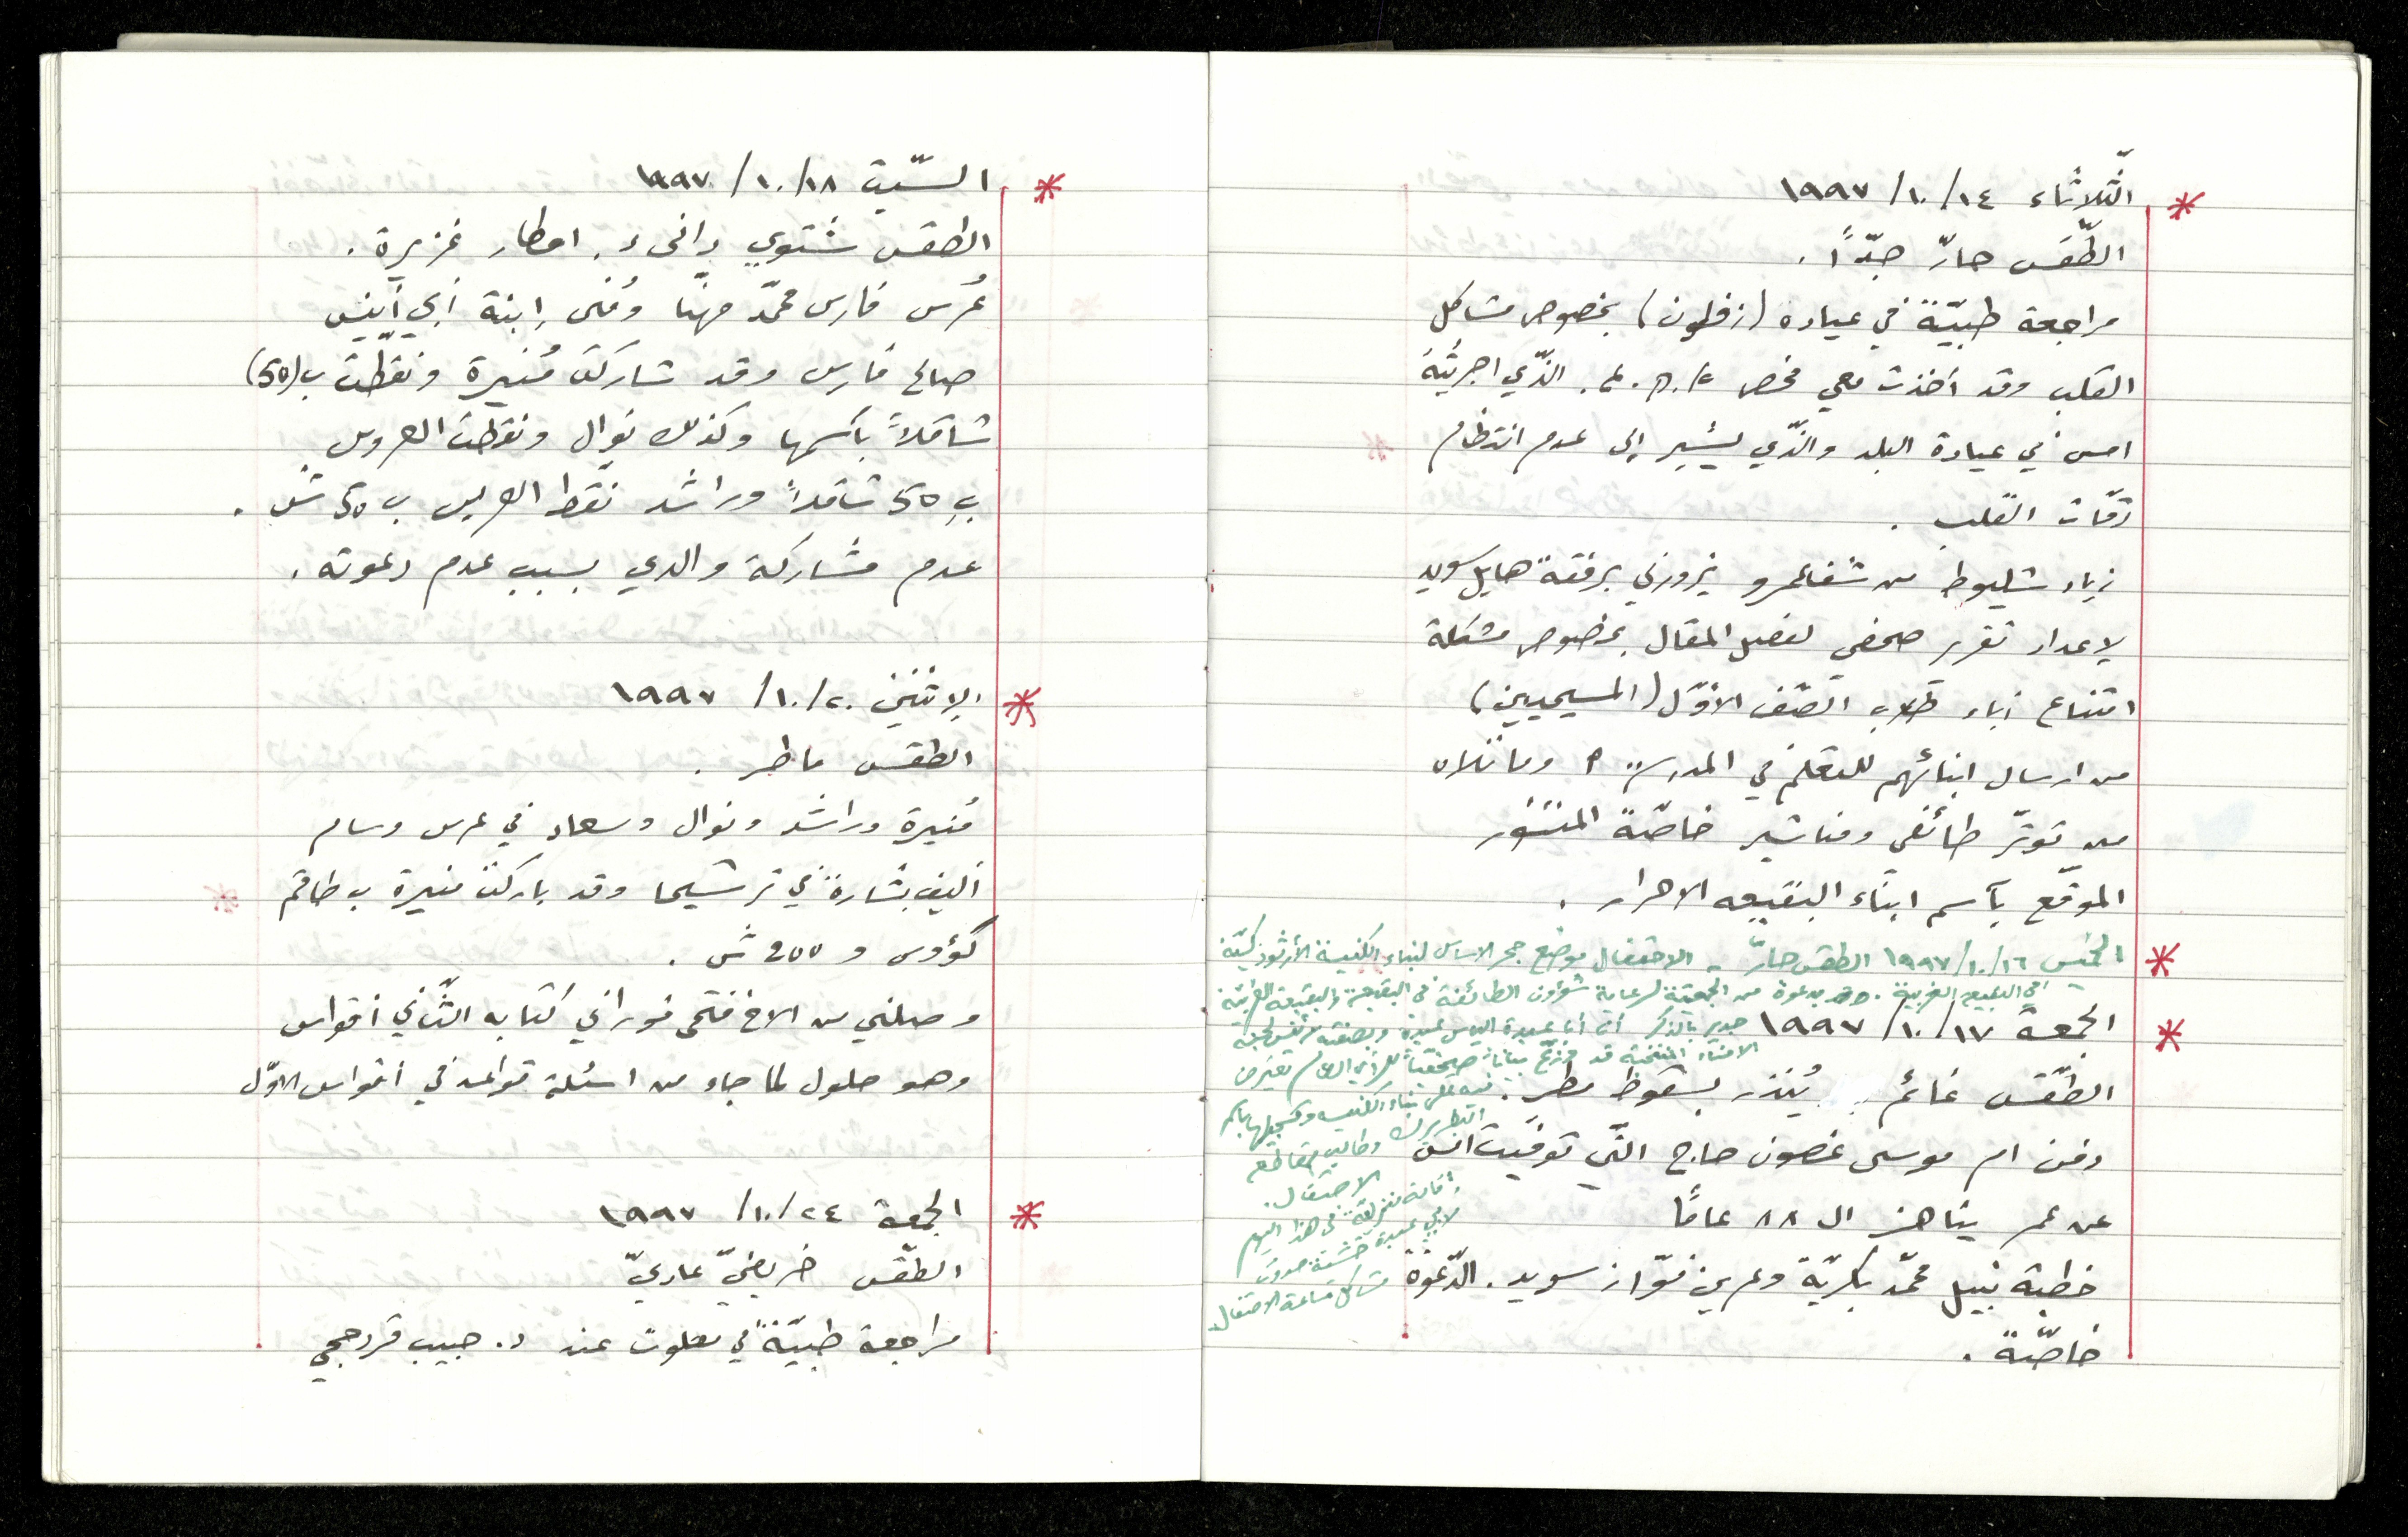 الثّلاثاء ١٤/١٠/١٩٩٧
الطّقس حارّ جدّاً.
مراجعة طبيّة في عيادة (زفلون) بخصوص مشاكل
القلب وقد أخذت معي فحص الّذي اجريتُهُ
امس في عيادة البلد والّذي يشير إلى عدم انتظام
دقّات القلب.
زياد شليوط من شفاعمرو يزورني برفقة هايل سويد
لإعداد تقرير صحفي لفصل المقال بخصوص مشكلة
امتناع آباء طلاب الصّف الأوّل (المسيحيين)
من ارسال ابنائهم للتعلّم في المدرسة وما تلاه
من توتّر طائفي ومناشير خاصّة المنشور
الموقّع بآسم ابناء البقيعه الاحرار.
الخميس ١٦/١٠/١٩٩٧ الطقس حارّ - الاحتفال بوضع حجر الاساس لبناء الكنيسة الأرثوذكسيّة
في البقيعه الغربية. بدعوة من الجمعيّة لرعاية شؤون الطائفة في البقيعة والبقيعة الغربيّة
جدير بالذّكر أنّ أبا عبيدة الياس عبيدة وبصفته رئيس لجنة
الامناء المنتخبة قد وزّع بياناً صحفيّاً للرأي العام تعترض
فيه على بناء الكنيسه وتسجيلها بآسم
البطريرك وطالب بمقاطعة
الاحتفال.
إقامة منزليّة في هذا اليوم
لابي عبيدة خشية حدوث
مشاكل ساعة الاحتفال
الجمعة ١٧/١٠/١٩٩٧
الطّقس غائم يُنذر بسقوط مطر.
دفن ام موسى غصون حاج الّتي توفّيت امس
عن عمر يناهز ال ٨٨ عامًا
خطبة نبيل محمّد بكريّة وعرين فوّاز سويد. الدّعوة
خاصّة.
السّبت ١٨/١٠/١٩٩٧
الطقس شتوي دافىء. امطار غزيرة.
عُرس فارس محمّد مهنّا ومُنى إبنة أبي أنيس
صالح فارس وقد شاركت مُنيرة ونقّطت ب(50)
شاقلاً بآسمها وكذلك نوال ونقّطت العروس
بِ 50 شاقلاً وراشد نقّط العريس ب 50 ش.
عدم مشاركة والدي بسبب عدم دعوته.
الإثنين ٢٠/١٠/١٩٩٧
الطقس ماطر.
مُنيرة وراشد ونوال وسعاد في عرس وسام
أليف بشارة في ترشيحا وقد باركت منيرة ب طاقم
كؤوس و 200 ش.
وصلني من الاخ فتحي فوراني كتابه الثّاني أقواس
وهو حلول لما جاء من اسئلة قواعد في أقواس الاوّل
الجمعة ٢٤/١٠/١٩٩٧
الطّقس خريفيّ عاديّ
مراجعة طبيّة في معلوت عند د. حبيب قردحجي